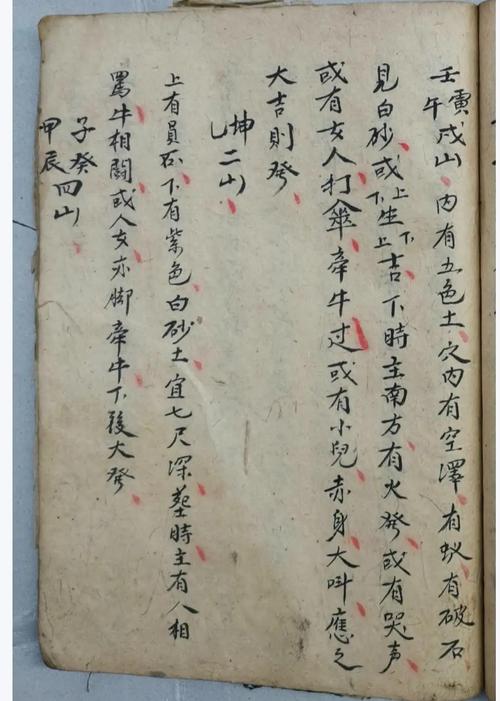 壬寅午戌山內有五色土穴內有空澤有蚁有破石
見白砂或上下生上下吉下時主南方有火發或有哭声
或有女人打傘牽牛过或有小兒赤身大呌應之
大吉則發
坤乚二山
上有員石下有紫色白砂土宜七尺深塟時主有人相
罵牛相鬪或人女赤脚牽牛下後大發
子癸甲辰四山